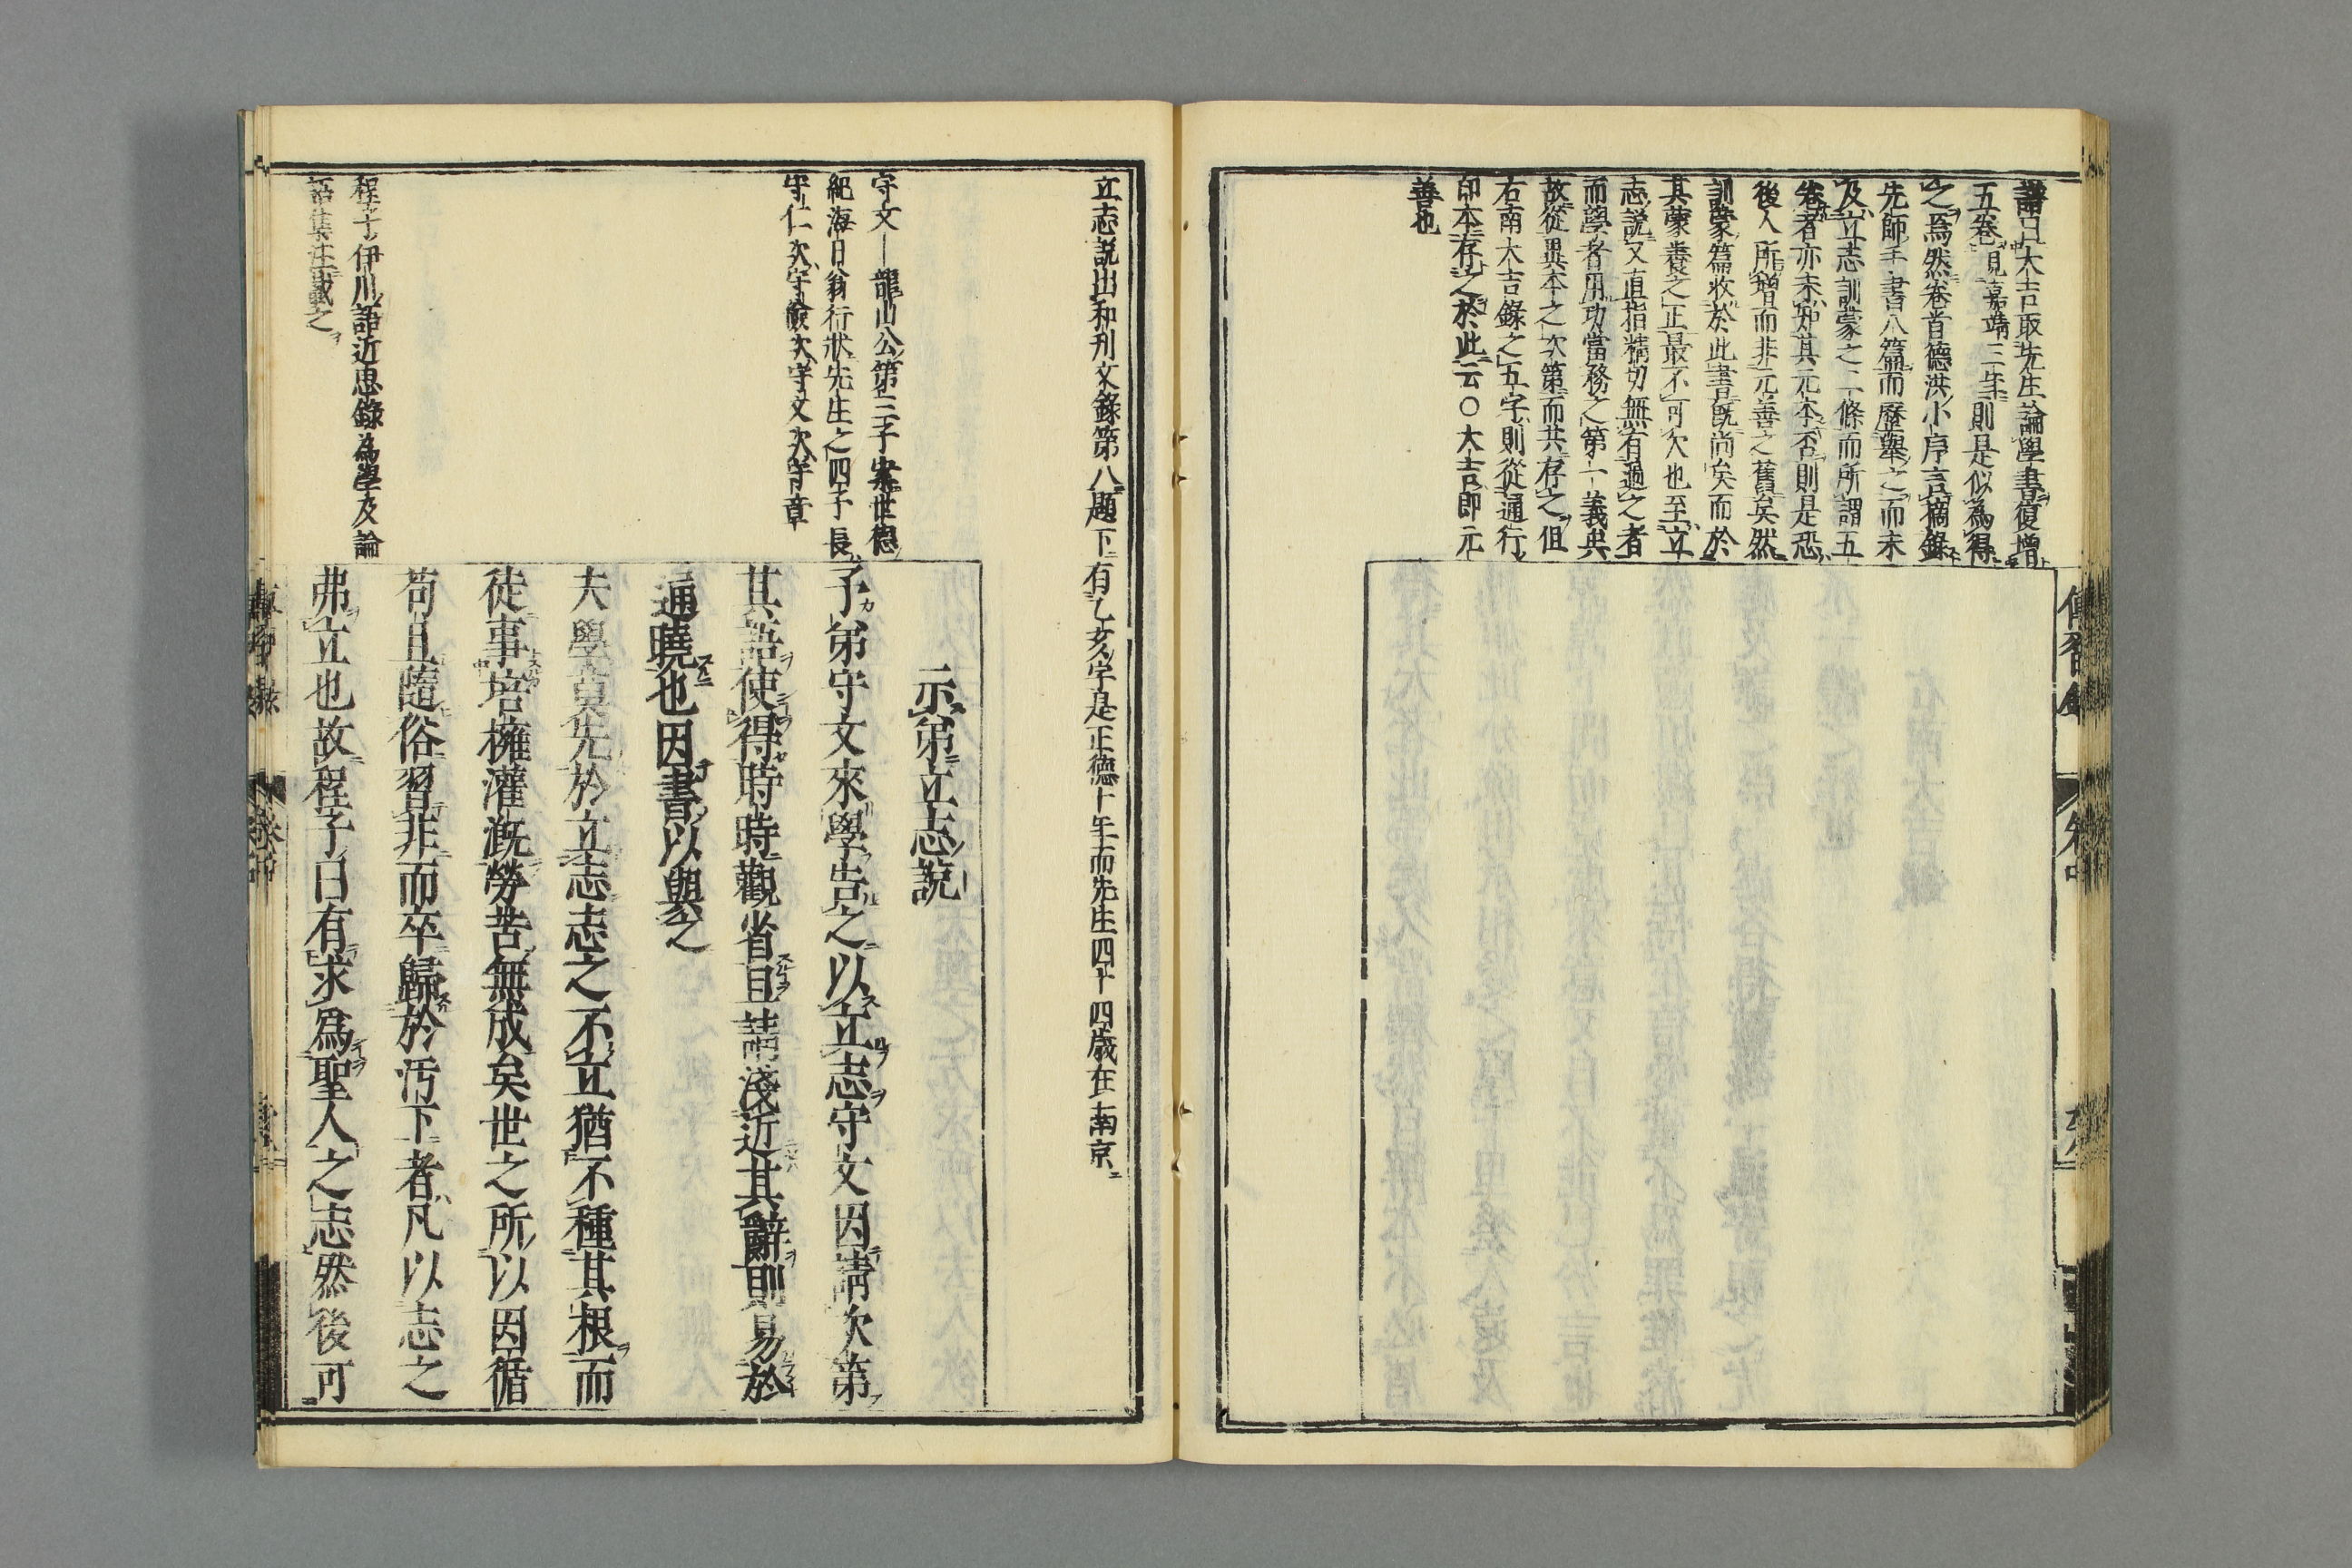 譜曰大吉取先生論學書復增
五卷見嘉靖三年則是似為得
之焉然卷首德洪小序言摘錄
先師手書八篇而歷舉之而未
及立志訓蒙之二條而所謂五
卷者亦未知其元本否則是恐
後人所增而非元善之舊矣然
訓蒙篇收於此書既尚矣而於
其蒙養之正最不可欠也至立
志說又直指精切無有過之者
而學者用功當務之第一義與
故從異本之次第而共存之但
右南大吉錄之五字則從通行
印本存之於此云○大吉即元
善也
傳習錄 卷中
立志說出和刊文錄第八題下有乙亥字是正德十年而先生四十四歲在南京
示弟立志說
守文—龍山公第三子案世德
紀海日翁行狀先生之四子長
守仁次守儉次守文次守章
予弟守文來學告之以立志守文因請次第
其語使得時時觀省且請淺近其辭則易於
通曉也因書以與之
夫學莫先於立志志之不立猶不種其根而
徒事培擁灌漑勞苦無成矣世之所以因循
苟且隨俗習非而卒歸於汚下者凡以志之
弗立也故程子曰有求為聖人之志然後可
程子伊川語近思錄為學及論
語集註載之